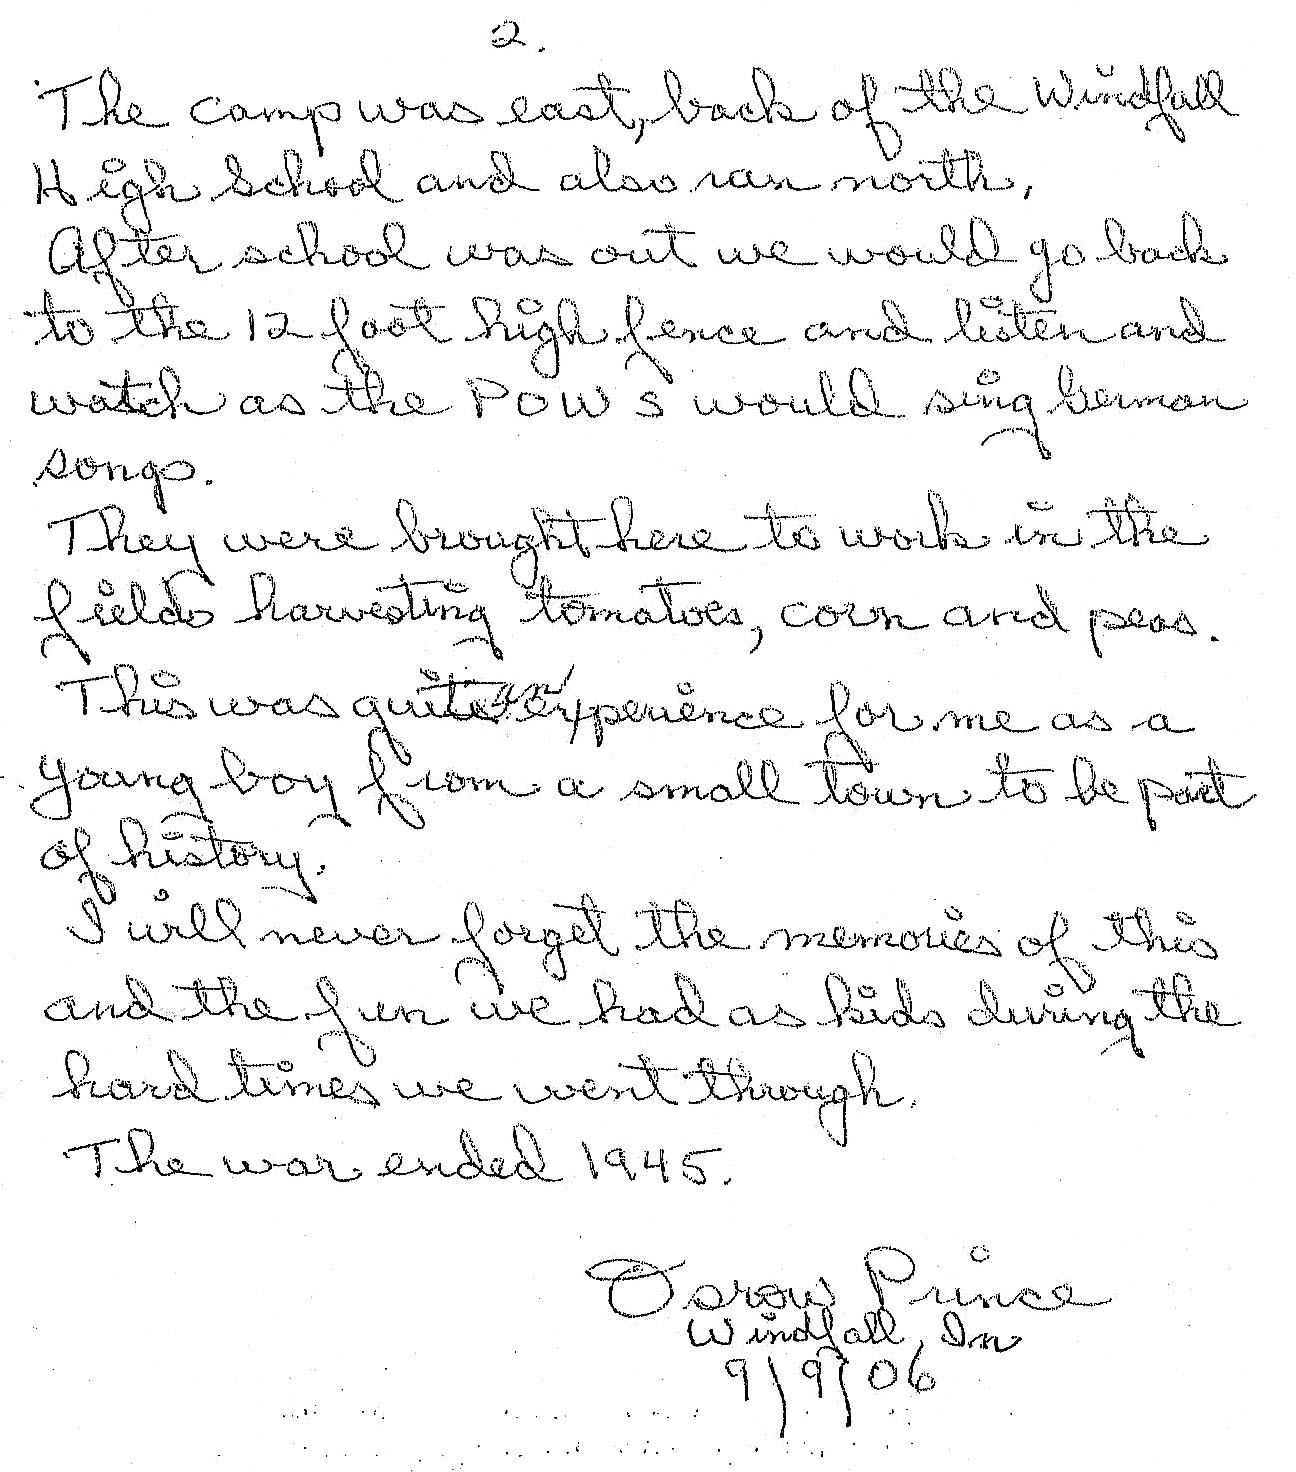 2.
The camp was east, back of the Windfall
High School and also ran north.
After school was out we would go back
to the 12 foot high fence and listen and
watch as the POW s would sing German
songs.
They were brought here to work in the
fields harvesting tomatoes, corn and peas.
This was quite an experience for me as a
young boy from a small town to be part
of history.
I will never forget the memories of this
and the fun we had as kids during the
hard times we went through.
The war ended 1945.
Osrow Prince
Windfall, In
9/9/06